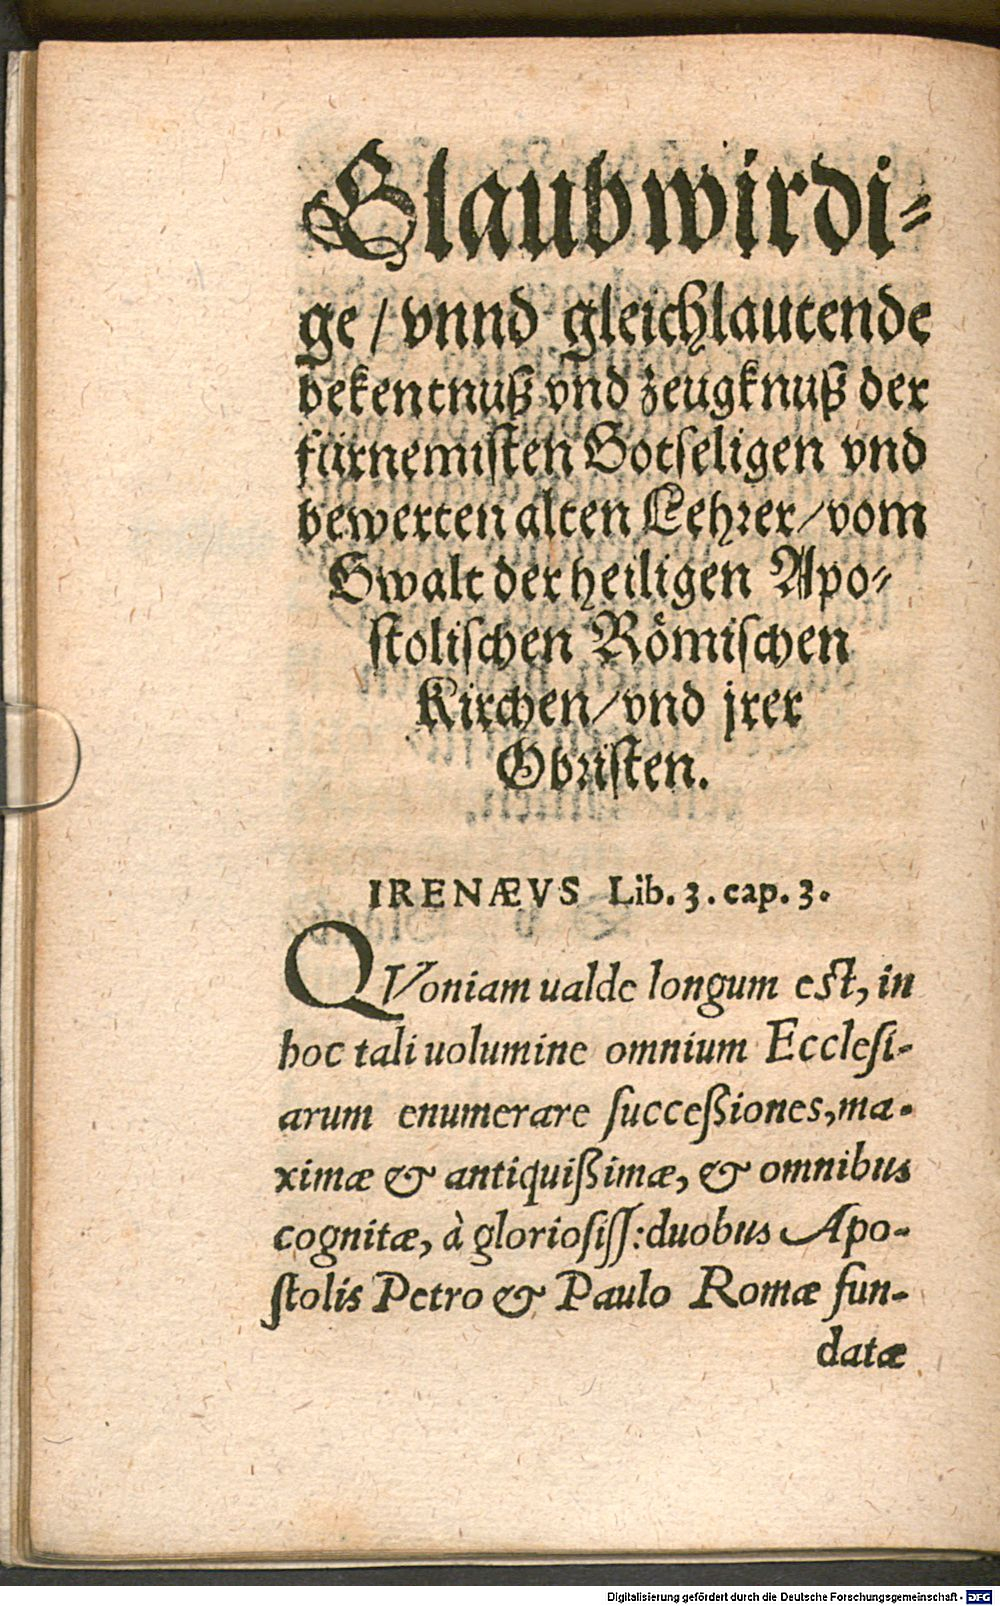 Glaubwirdi-
ge / vnnd gleichlautende
bekentnuß vnd zeugknuß der
fürnemisten Gotseligen vnd
bewerten alten Lehrer / vom
Gwalt der heiligen Apo-
stolischen Römischen
Kirchen / vnd jrer
Obristen.
IRENÆVS Lib. 3. cap. 3.
QVoniam ualde longum est, in
hoc tali uolumine omnium Ecclesi-
arum enumerare succeßiones, ma-
ximæ & antiquißimæ, & omnibus
cognitæ, à gloriosiss: duobus Apo-
stolis Petro & Paulo Romæ fun-
datæ
Digitalisierung gefördert durch die Deutsche Forschungsgemeinschaft - DFG